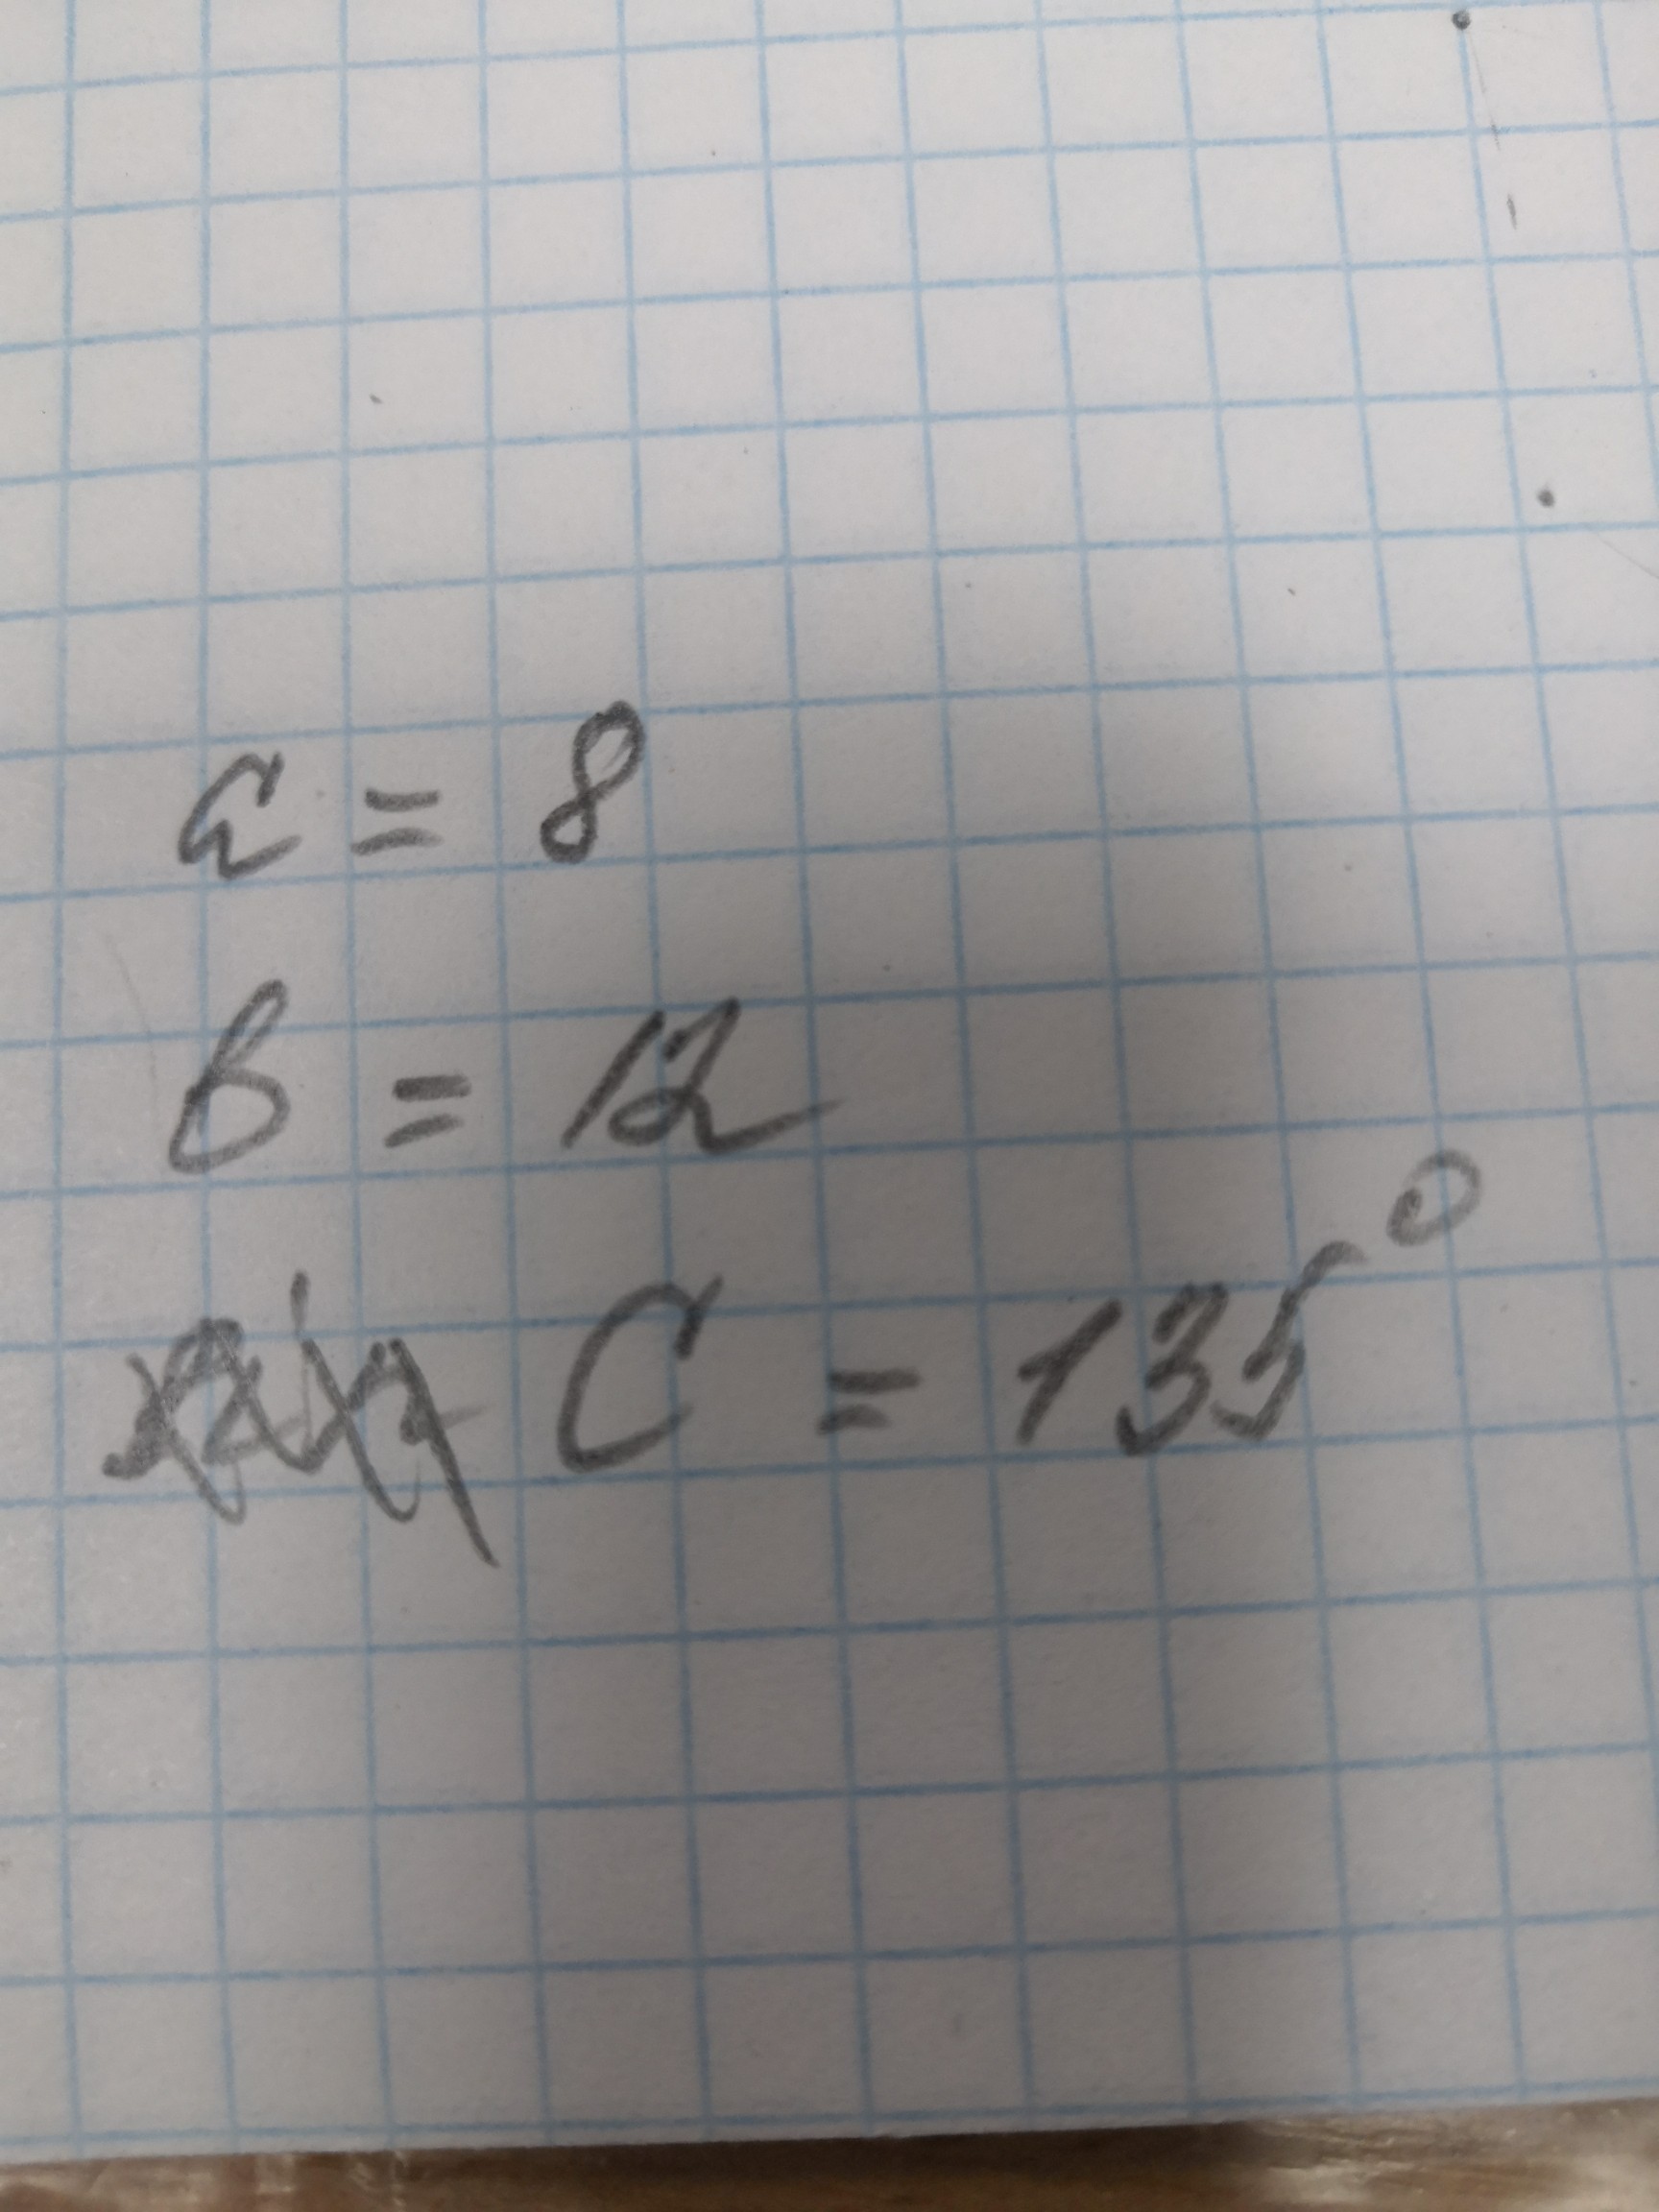 a = 8
b = 12
C = 135°